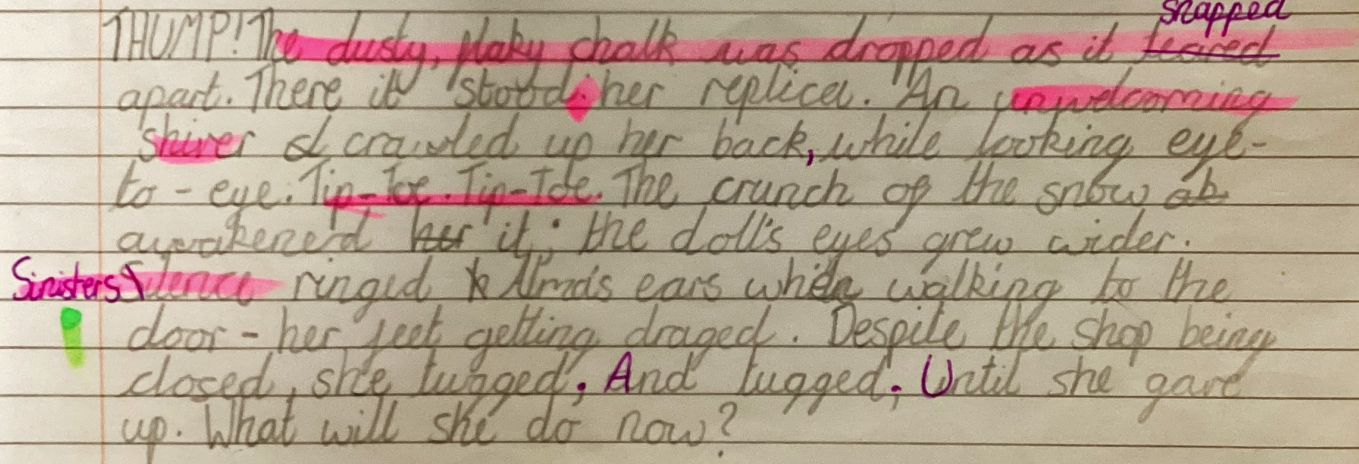 snapped
THUMP! The dusty, flaky chalk was dropped as it teared
apart. There it stood: her replica. An unwelcoming
shiver crawled up her back, while looking eye-
to-eye. Tip-Toe. Tip-Toe. The crunch of the snow
awakened her it; the doll's eyes grew wider.
Sinister Silence ringed Alma's ears when walking to the
door - her feet getting draged. Despite the shop being
closed, she tugged. And tugged. Until she gave
up. What will she do now?